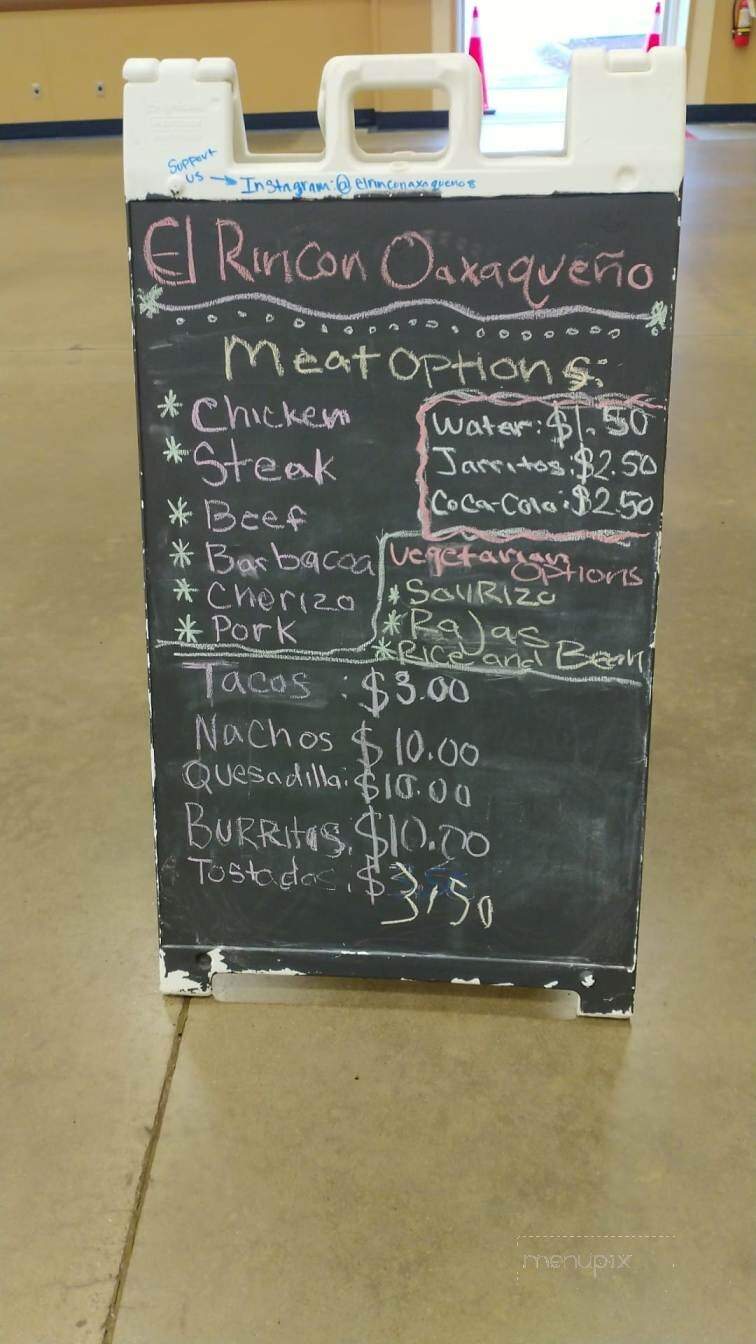 Support
us → Instagram:@elrinconoaxaqueno8
El Rincon Oaxaqueño
Meat Options:
* Chicken
* Steak
* Beef
* Barbacoa
* Cherizo
* Pork
Water: $1.50
Jarritos: $2.50
Coca-Cola: $2.50
Vegetarian
Options
* SoyRizo
* Rajas
* Rice and Bean
Tacos : $3.00
Nachos $10.00
Quesadilla: $10.00
BURRitos: $10.00
Tostadas: $3.50
menupix